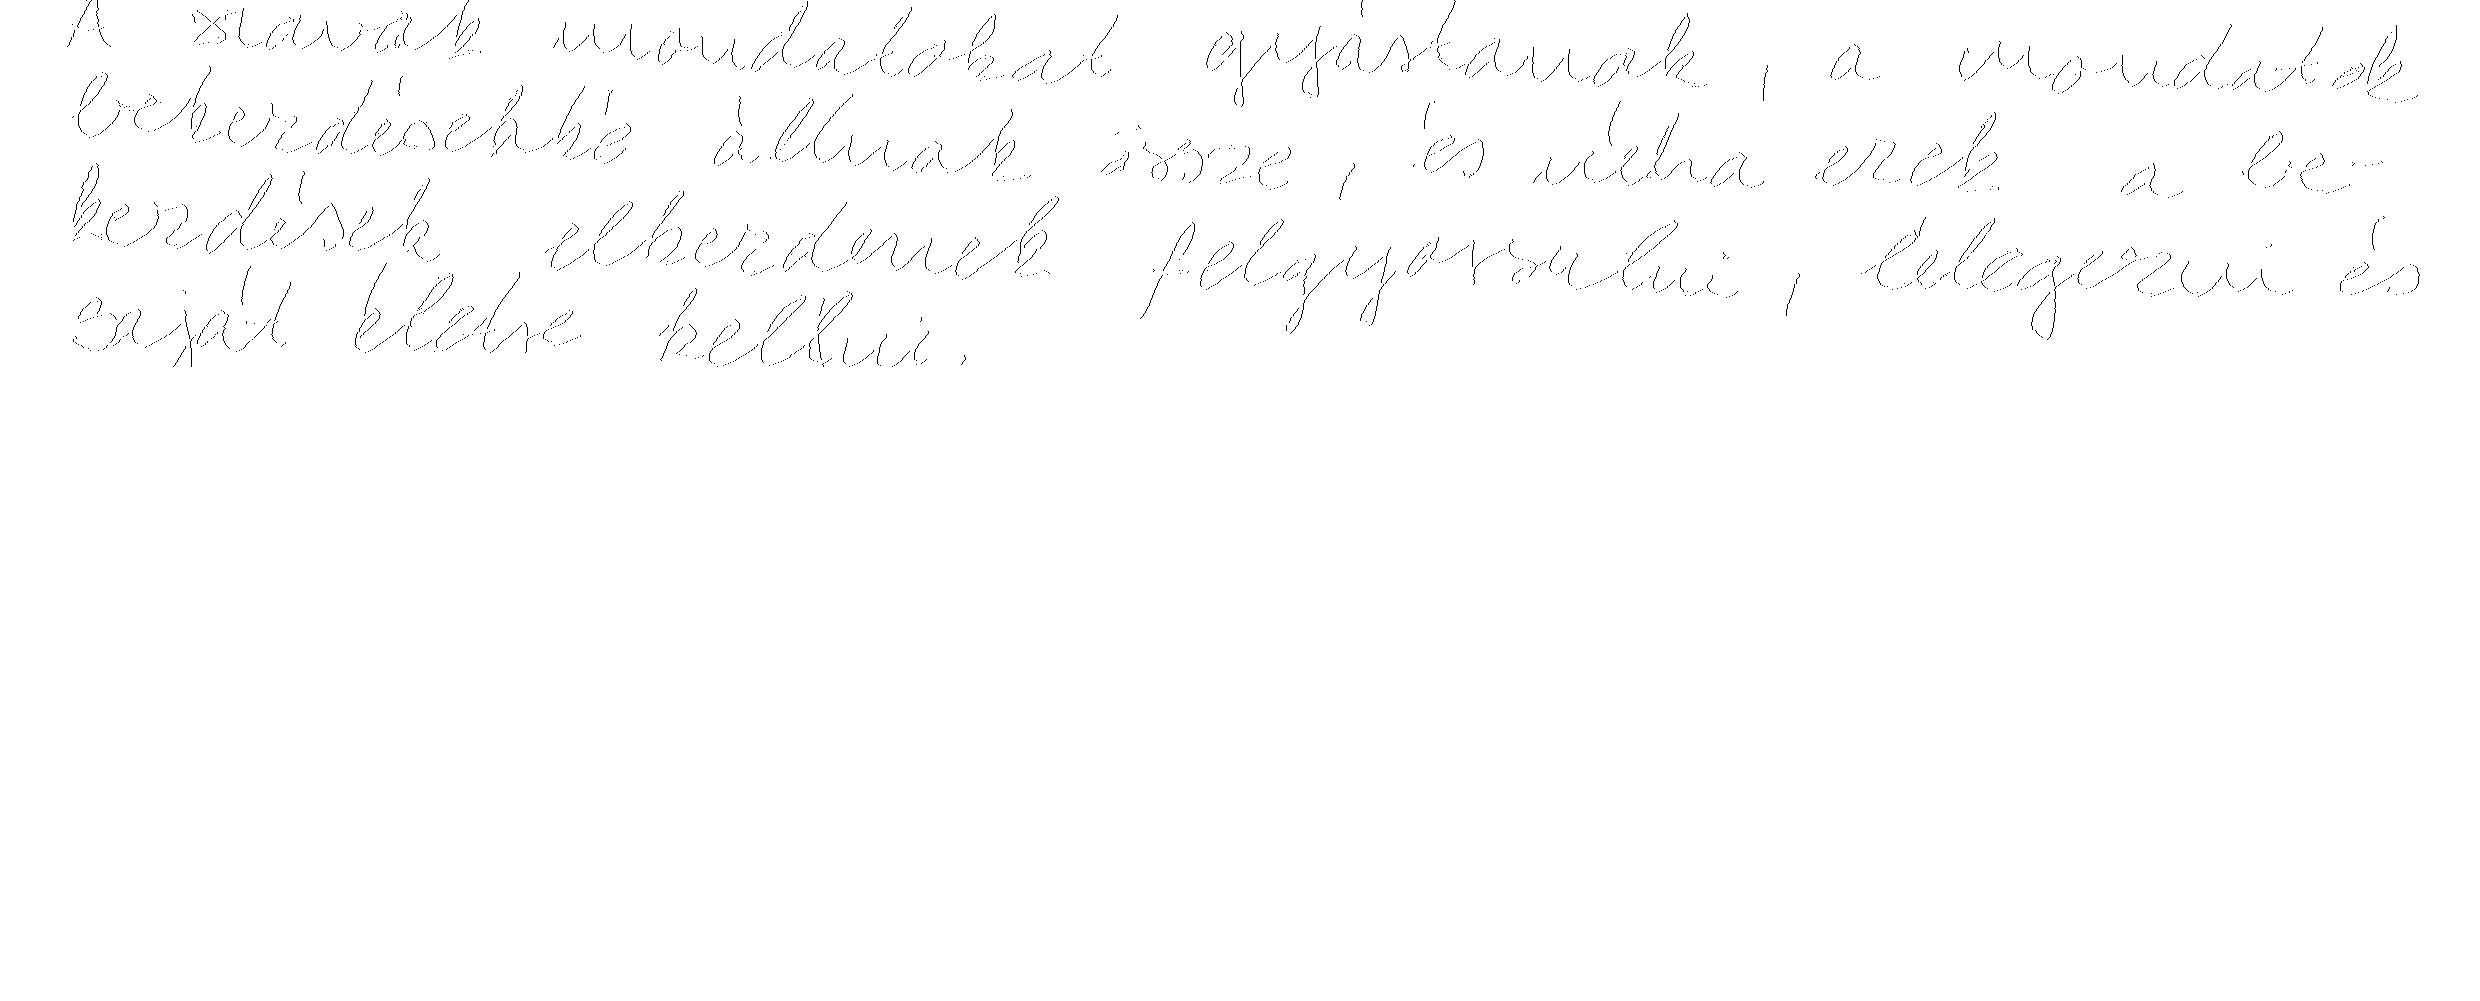 A szavak mondatokat gyártanak, a mondatok
bekezdésekké állnak össze, és néha ezek a be-
kezdések elkezdenek felgyorsulni, lélegezni és
saját életre kellni.